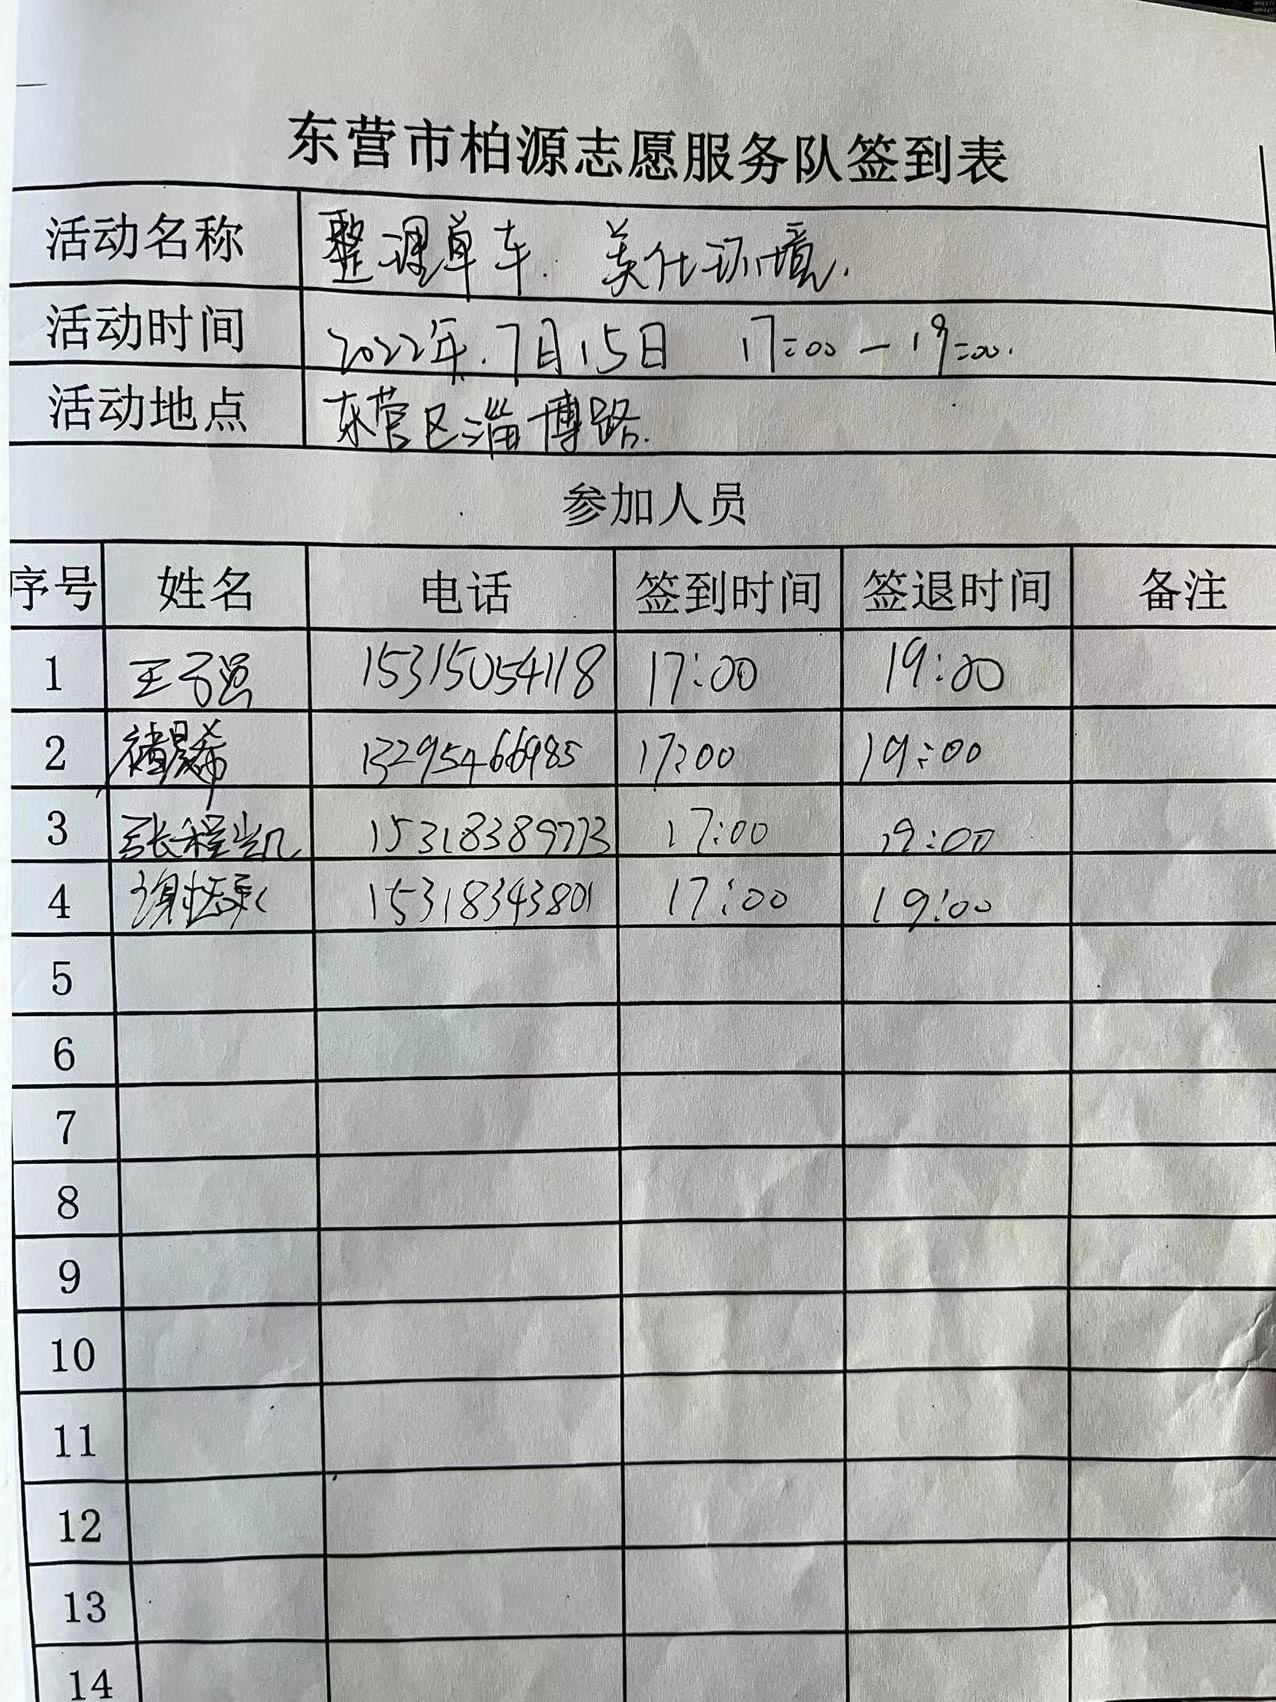 东营市柏源志愿服务队签到表
活动名称 整理单车. 美化环境.
活动时间 2022年.7月15日 17:00-19:00.
活动地点 东营区淄博路.
参加人员
序号 姓名 电话 签到时间 签退时间 备注
1 王子强 15315054118 17:00 19:00
2 褚晨希 13295466985 17:00 19:00
3 张程凯 15318389773 17:00 19:00
4 15318343801 17:00 19:00
5
6
7
8
9
10
11
12
13
14